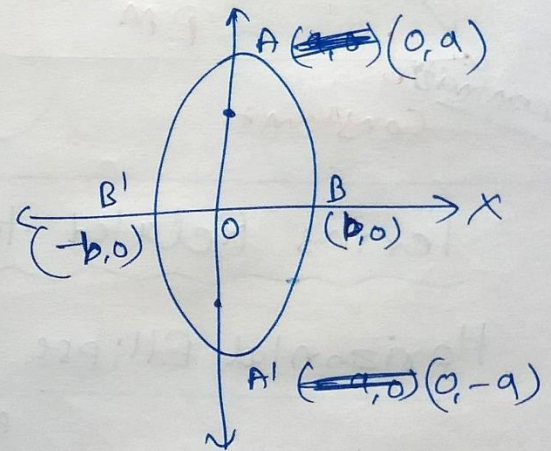 A (0,a)
B' B X
(-b,0) O (b,0)
A' (0,-a)